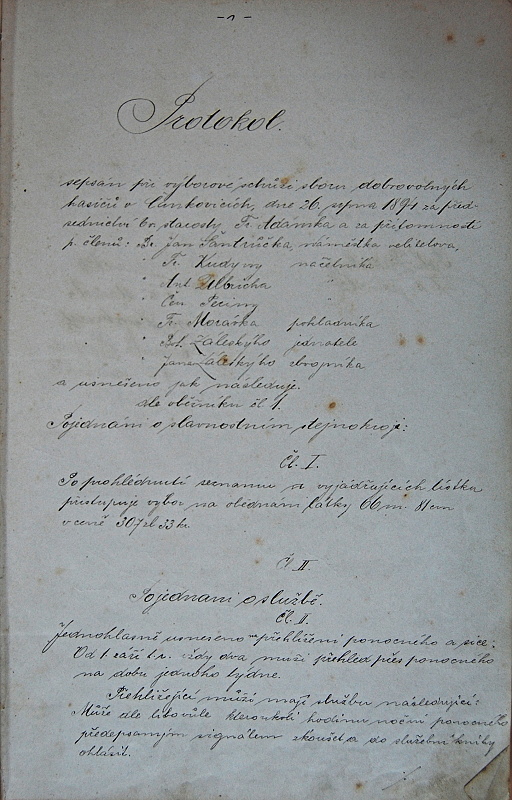 -1-
Protokol.
sepsán při výborové schůzi sboru dobrovolných
hasičů v Čínkovicích, dne 26. srpna 1894 za před-
sednictví br. starosty, Fr. Adámka a za přítomnosti
p. členů: Br. Jan Šantrůčka, náměstka velitelova,
" Fr. Kudyvy načelníka
" Ant. Ulbricha "
" Čen. Peciny
" Fr. Morávka pokladníka
" Zaleskýho jednatele
" Jana Záleskýho zbrojníka
a usnešeno jak následuje.
dle oběžníku čl. 1.
Pojednání o slavnostním stejnokroji:
Čl. I.
Po prohlédnutí seznamu a vyjádřujících lístku
přistupuje výbor na objednání látky 66 m. 81 cm
v ceně 307 zl 33 kr.
Čl II.
Pojednani o službě.
Čl. II.
Jednohlasně usneseno přehlížení ponocného a sice:
Od 1 září t. r. vždy dva muži přehled přes ponocného
na dobu jednoho týdne.
Přehlížející muži mají službu následující:
Může dle libovůle kteroukoli hodinu noční ponocného
předepsaným signálem zkoušet a do služební knihy
ohlásit.